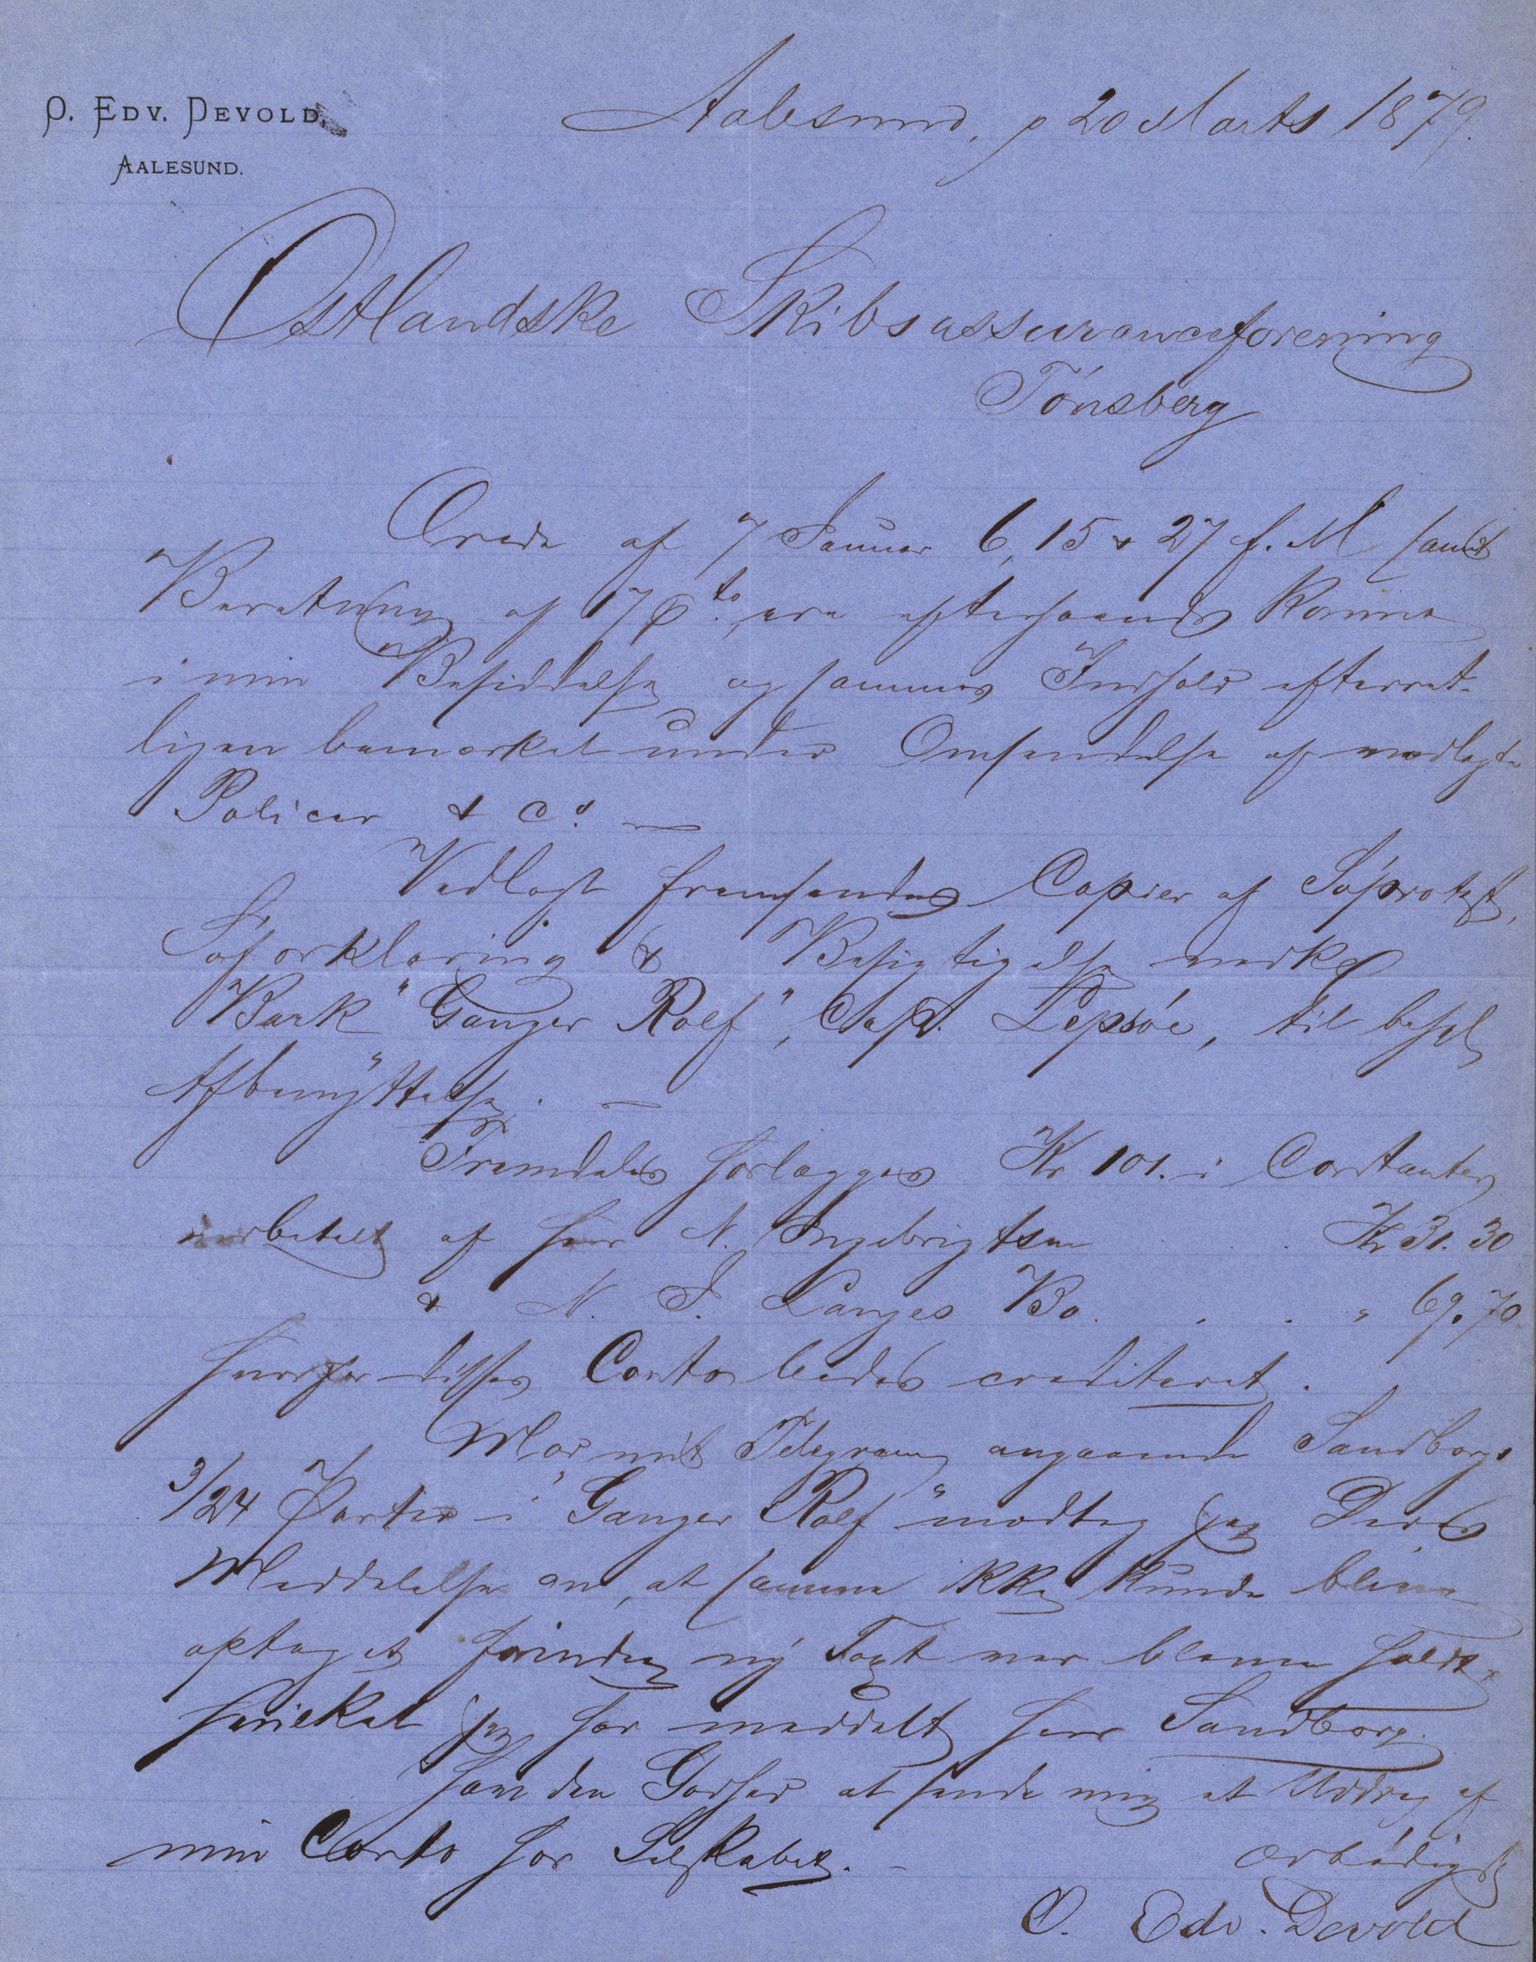 O. EDV. DEVOLD,
AALESUND.
Aalesund, p 20 Marts 1879.
Østlandske Skibsassuranceforening
Tönsberg
Ærede af 7 Januar 6, 15 & 27 f. M samt
Beretning af 17 pto, ere efterhaanden komne
i min Besiddelse og sammes Indhold efterret-
ligen bemærket under Omsendelse af modtagne
Policer & Co. —
Vedlagt fremsendes Copier af Söprotest,
Söforklaring & Besigtigelse
Bark "Ganger Rolf", Capt. Lepsöe, til behl
Afbenÿttelse. —
Fremdeles Kr 101. i Contanter
indbetalt af Herr N. Ingebrigtsen . . . Kr 31. 30
& N. J. Langes Bo. . . . " 69.70
hvorfor disses Conto bedes crediteret.
Paa mit Telegram angaaende Sandborgs
3/24 Parter i "Ganger Rolf" modtog jeg Deres
Meddelelse om, at samme ikke kunde blive
optaget forinden nÿ Taxt var bleven holdt,
hvilket jeg har meddelt Herr Sandborg.
Hav den Godhed at sende mig et Uddrag af
min Conto for Selskabet. —
Ærbödigst
O. Edv. Devold